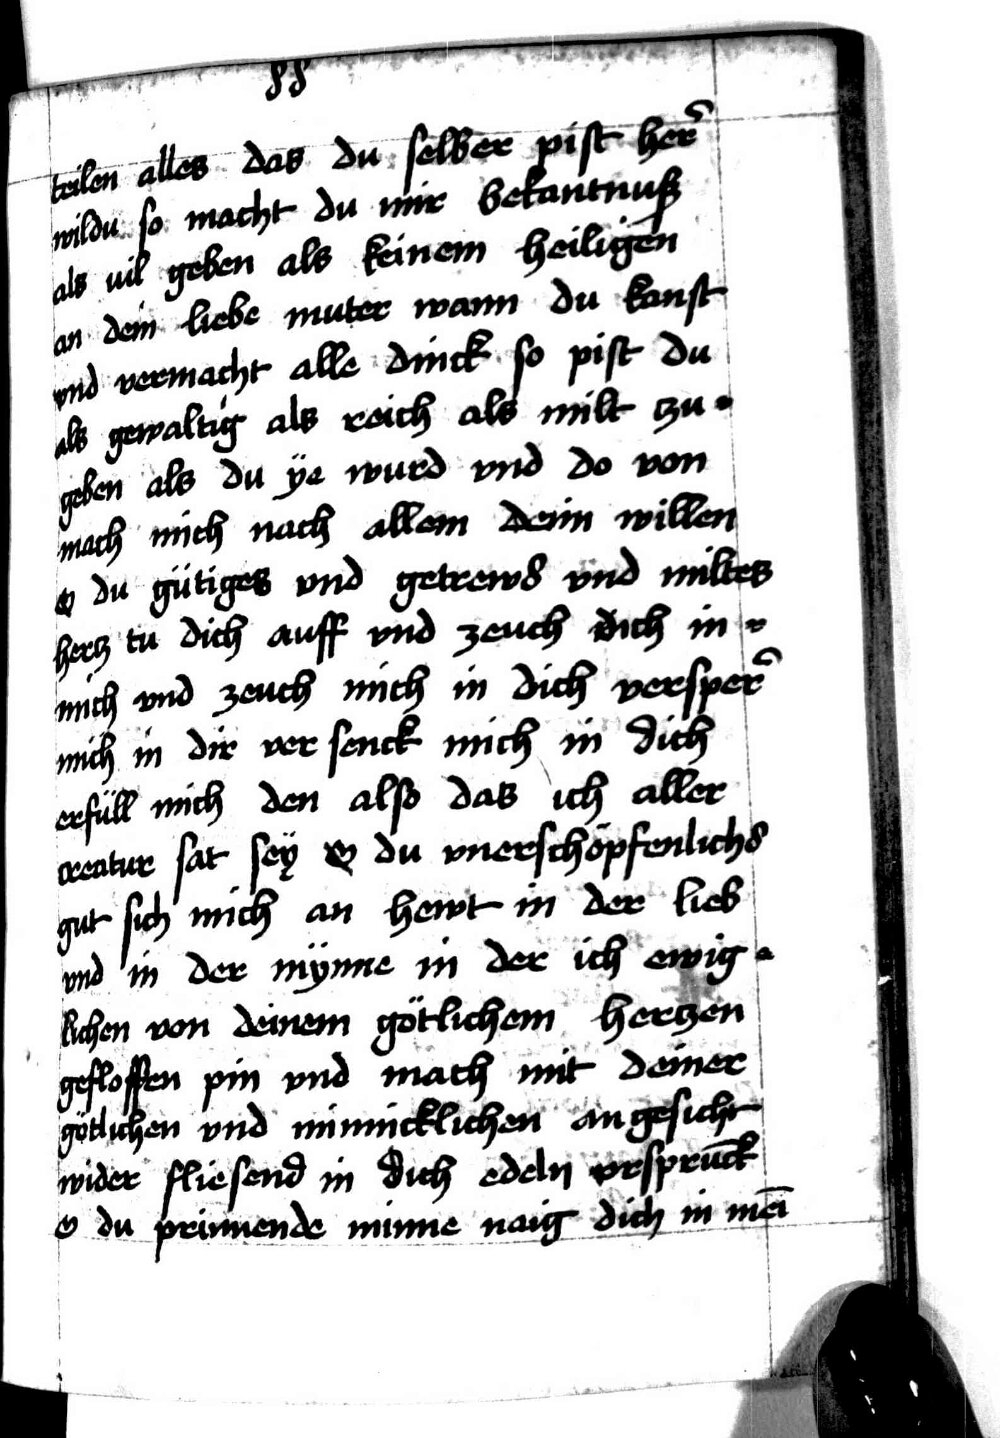 88
teilen alles das du selber pist her̃
wildu so macht du mir bekantnuß
als vil geben als keinem heiligen
an dem liebe muter wann du kanst
vnd vermacht alle dinck so pist du
als gewaltig als reich als milt czu
geben als du ÿe wurd vnd do von
mach mich nach allem deim willen
O du gütiges vnd getrews vnd miltes
hercz tu dich auff vnd zeuch dich in
mich vnd zeuch mich in dich versper̃
mich in dir ver senck mich in dich
erfüll mich den also das ich aller
creatur sat seÿ O du vnerschöpfenlichs
gut sich mich an hewt in der lieb
vnd in der mÿnne in der ich ewig
lichen von deinem götlichem herczen
geflossen pin vnd mach mit deiner
götlichen vnd minnicklichen angesicht
wider fliesend in dich edeln vrsprūck
O du prinnende minne naig dich in mēī